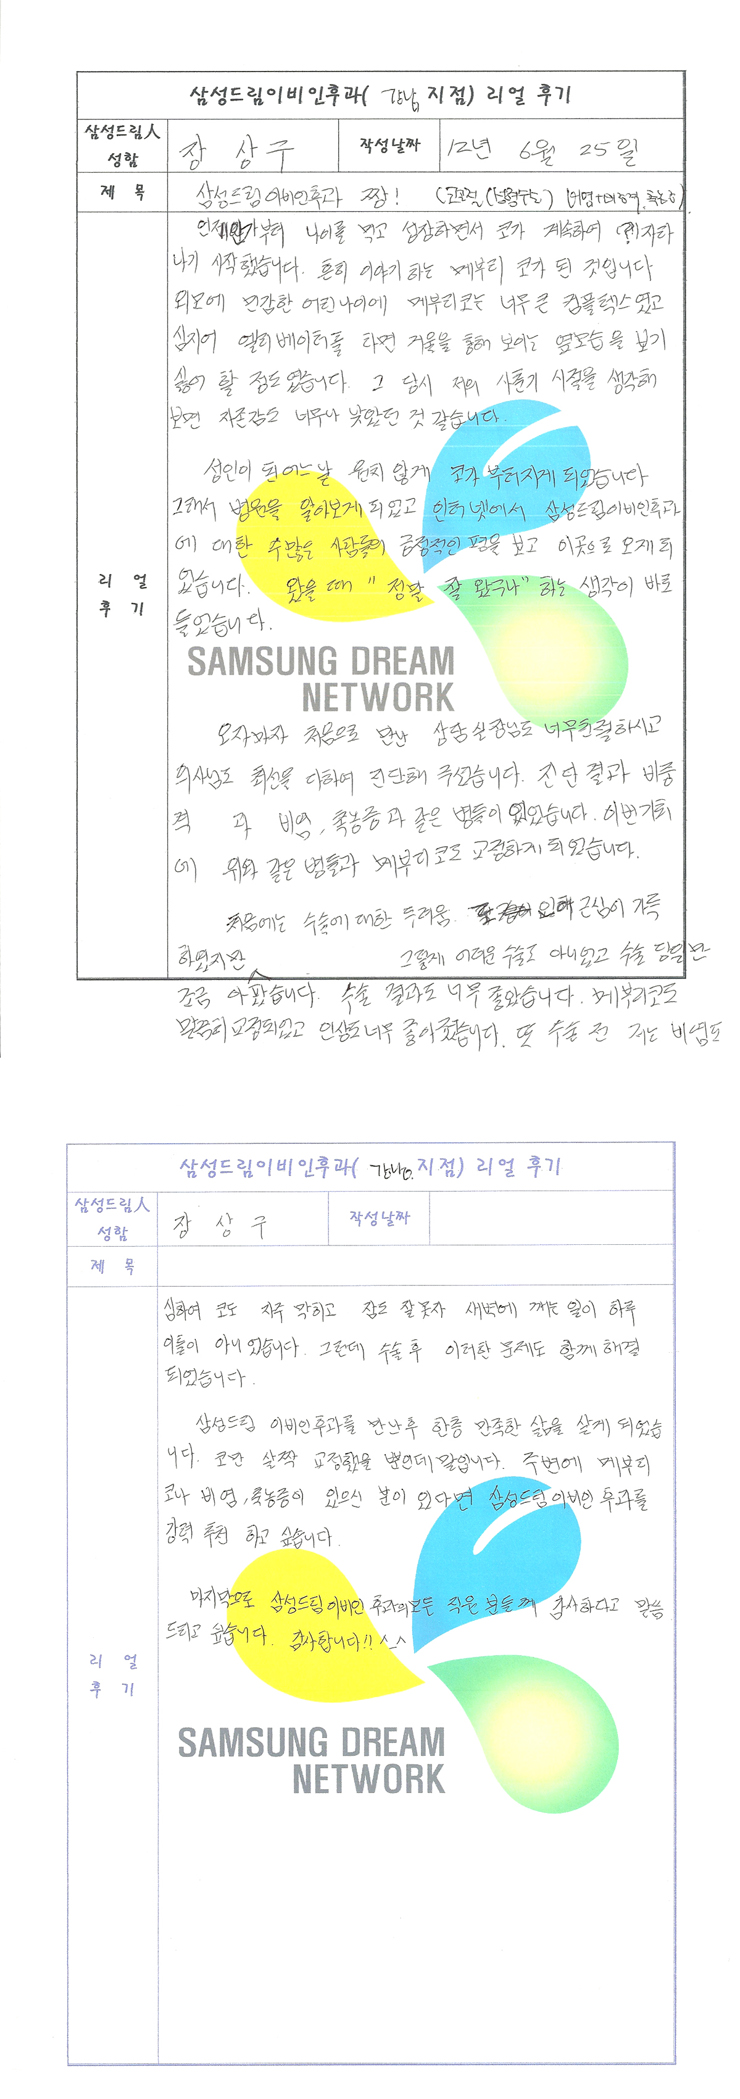 삼성드림이비인후과( 강남 지점) 리얼 후기
삼성드림人 성함
장 상 구
작성날짜
12년 6월 25일
제 목
삼성드림이비인후과 짱!
리 얼 후 기
언제인가부터 나이를 먹고 성장하면서 코가 계속하여 자라
나기 시작했습니다. 흔히 이야기 하는 메부리 코가 된 것입니다
외모에 민감한 어린나이에 메부리코는 너무 큰 컴플렉스였고
심지어 엘리베이터를 타면 거울을 통해 보이는 옆모습을 보기
싫어 할 정도였습니다. 그 당시 저의 사춘기 시절을 생각해
보면 자존감도 너무나 낮았던 것 같습니다.
성인이 된 어느날 원치 않게 코가 부러지게 되었습니다
그래서 병원을 알아보게 되었고 인터넷에서 삼성드림이비인후과
에 대한 수많은 사람들의 긍정적인 평을 보고 이곳으로 오게 되
었습니다. 왔을 때 "정말 잘 왔구나" 하는 생각이 바로
들었습니다.
SAMSUNG DREAM
NETWORK
오자마자 처음으로 만난 상담실장님도 너무 친절하시고
의사님도 최선을 다하여 진단해 주셨습니다. 진단 결과 비중
격 과 비염, 축농증과 같은 병들이 있었습니다. 이번기회
에 위와 같은 병들과 메부리코도 교정하게 되었습니다.
처음에는 수술에 대한 두려움 근심이 가득
하였지만 그렇게 어려운 수술도 아니었고 수술 당일만
조금 아팠습니다. 수술 결과도 너무 좋았습니다. 메부리코도
말끔히 교정되었고 인상도 너무 좋아졌습니다. 또 수술 전 저는 비염도
삼성드림이비인후과( 강남 지점) 리얼 후기
삼성드림人 성함
장 상 구
작성날짜
제 목
리 얼 후 기
심하여 코도 자주 막히고 잠도 잘 못자 새벽에 깨는 일이 하루
이틀이 아니었습니다. 그런데 수술 후 이러한 문제도 함께 해결
되었습니다.
삼성드림 이비인후과를 만난후 한층 만족한 삶을 살게 되었습
니다. 코만 살짝 교정했을 뿐인데 말입니다. 주변에 메부리
코나 비염, 축농증이 있으신 분이 있다면 삼성드림이비인후과를
강력 추천 하고 싶습니다.
마지막으로 삼성드림이비인후과의 모든 직원 분들께 감사하다고 말씀
드리고 싶습니다. 감사합니다!! ^_^
SAMSUNG DREAM
NETWORK